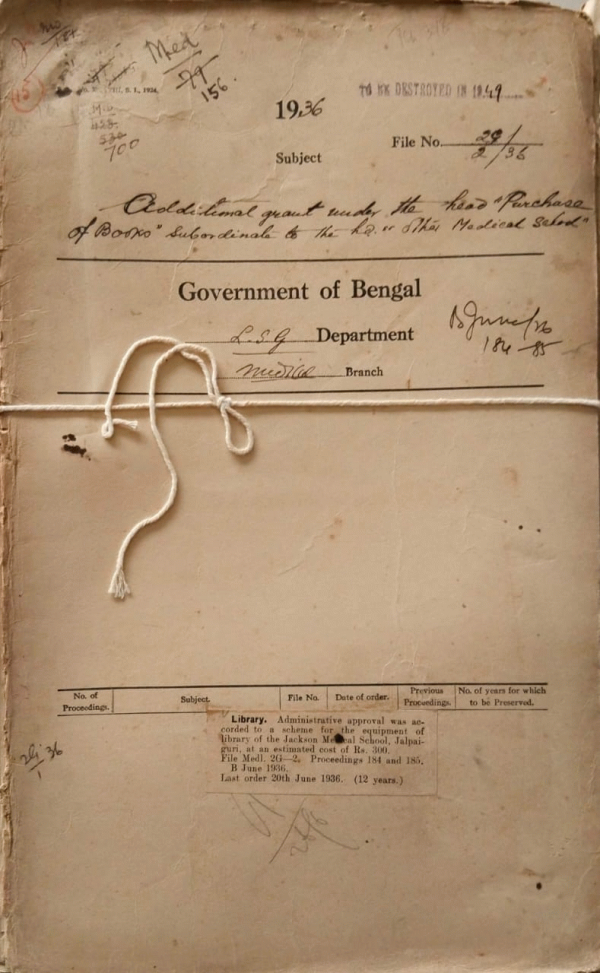 Med
156.
TO BE DESTROYED IN 1949
1936
File No. 2G/
2/36
Subject
700
Additional grant under the head "Purchase
of Books" Subordinate to the hd. " Other Medical School"
Government of Bengal
L.S.G Department
B June/36
184-85
Medical Branch
No. of
Proceedings.
Subject.
File No.
Date of order.
Previous
Proceedings.
No. of years for which
to be Preserved.
Library. Administrative approval was ac-
corded to a scheme for the equipment of
library of the Jackson Medical School, Jalpai-
guri, at an estimated cost of Rs. 300.
File Medl. 2G—2. Proceedings 184 and 185,
B June 1936.
Last order 20th June 1936. (12 years.)
2G 36
1